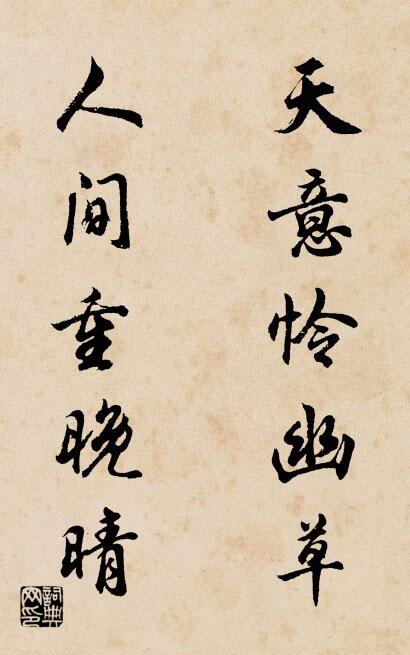 天意怜幽草
人间重晚晴
詞典网印